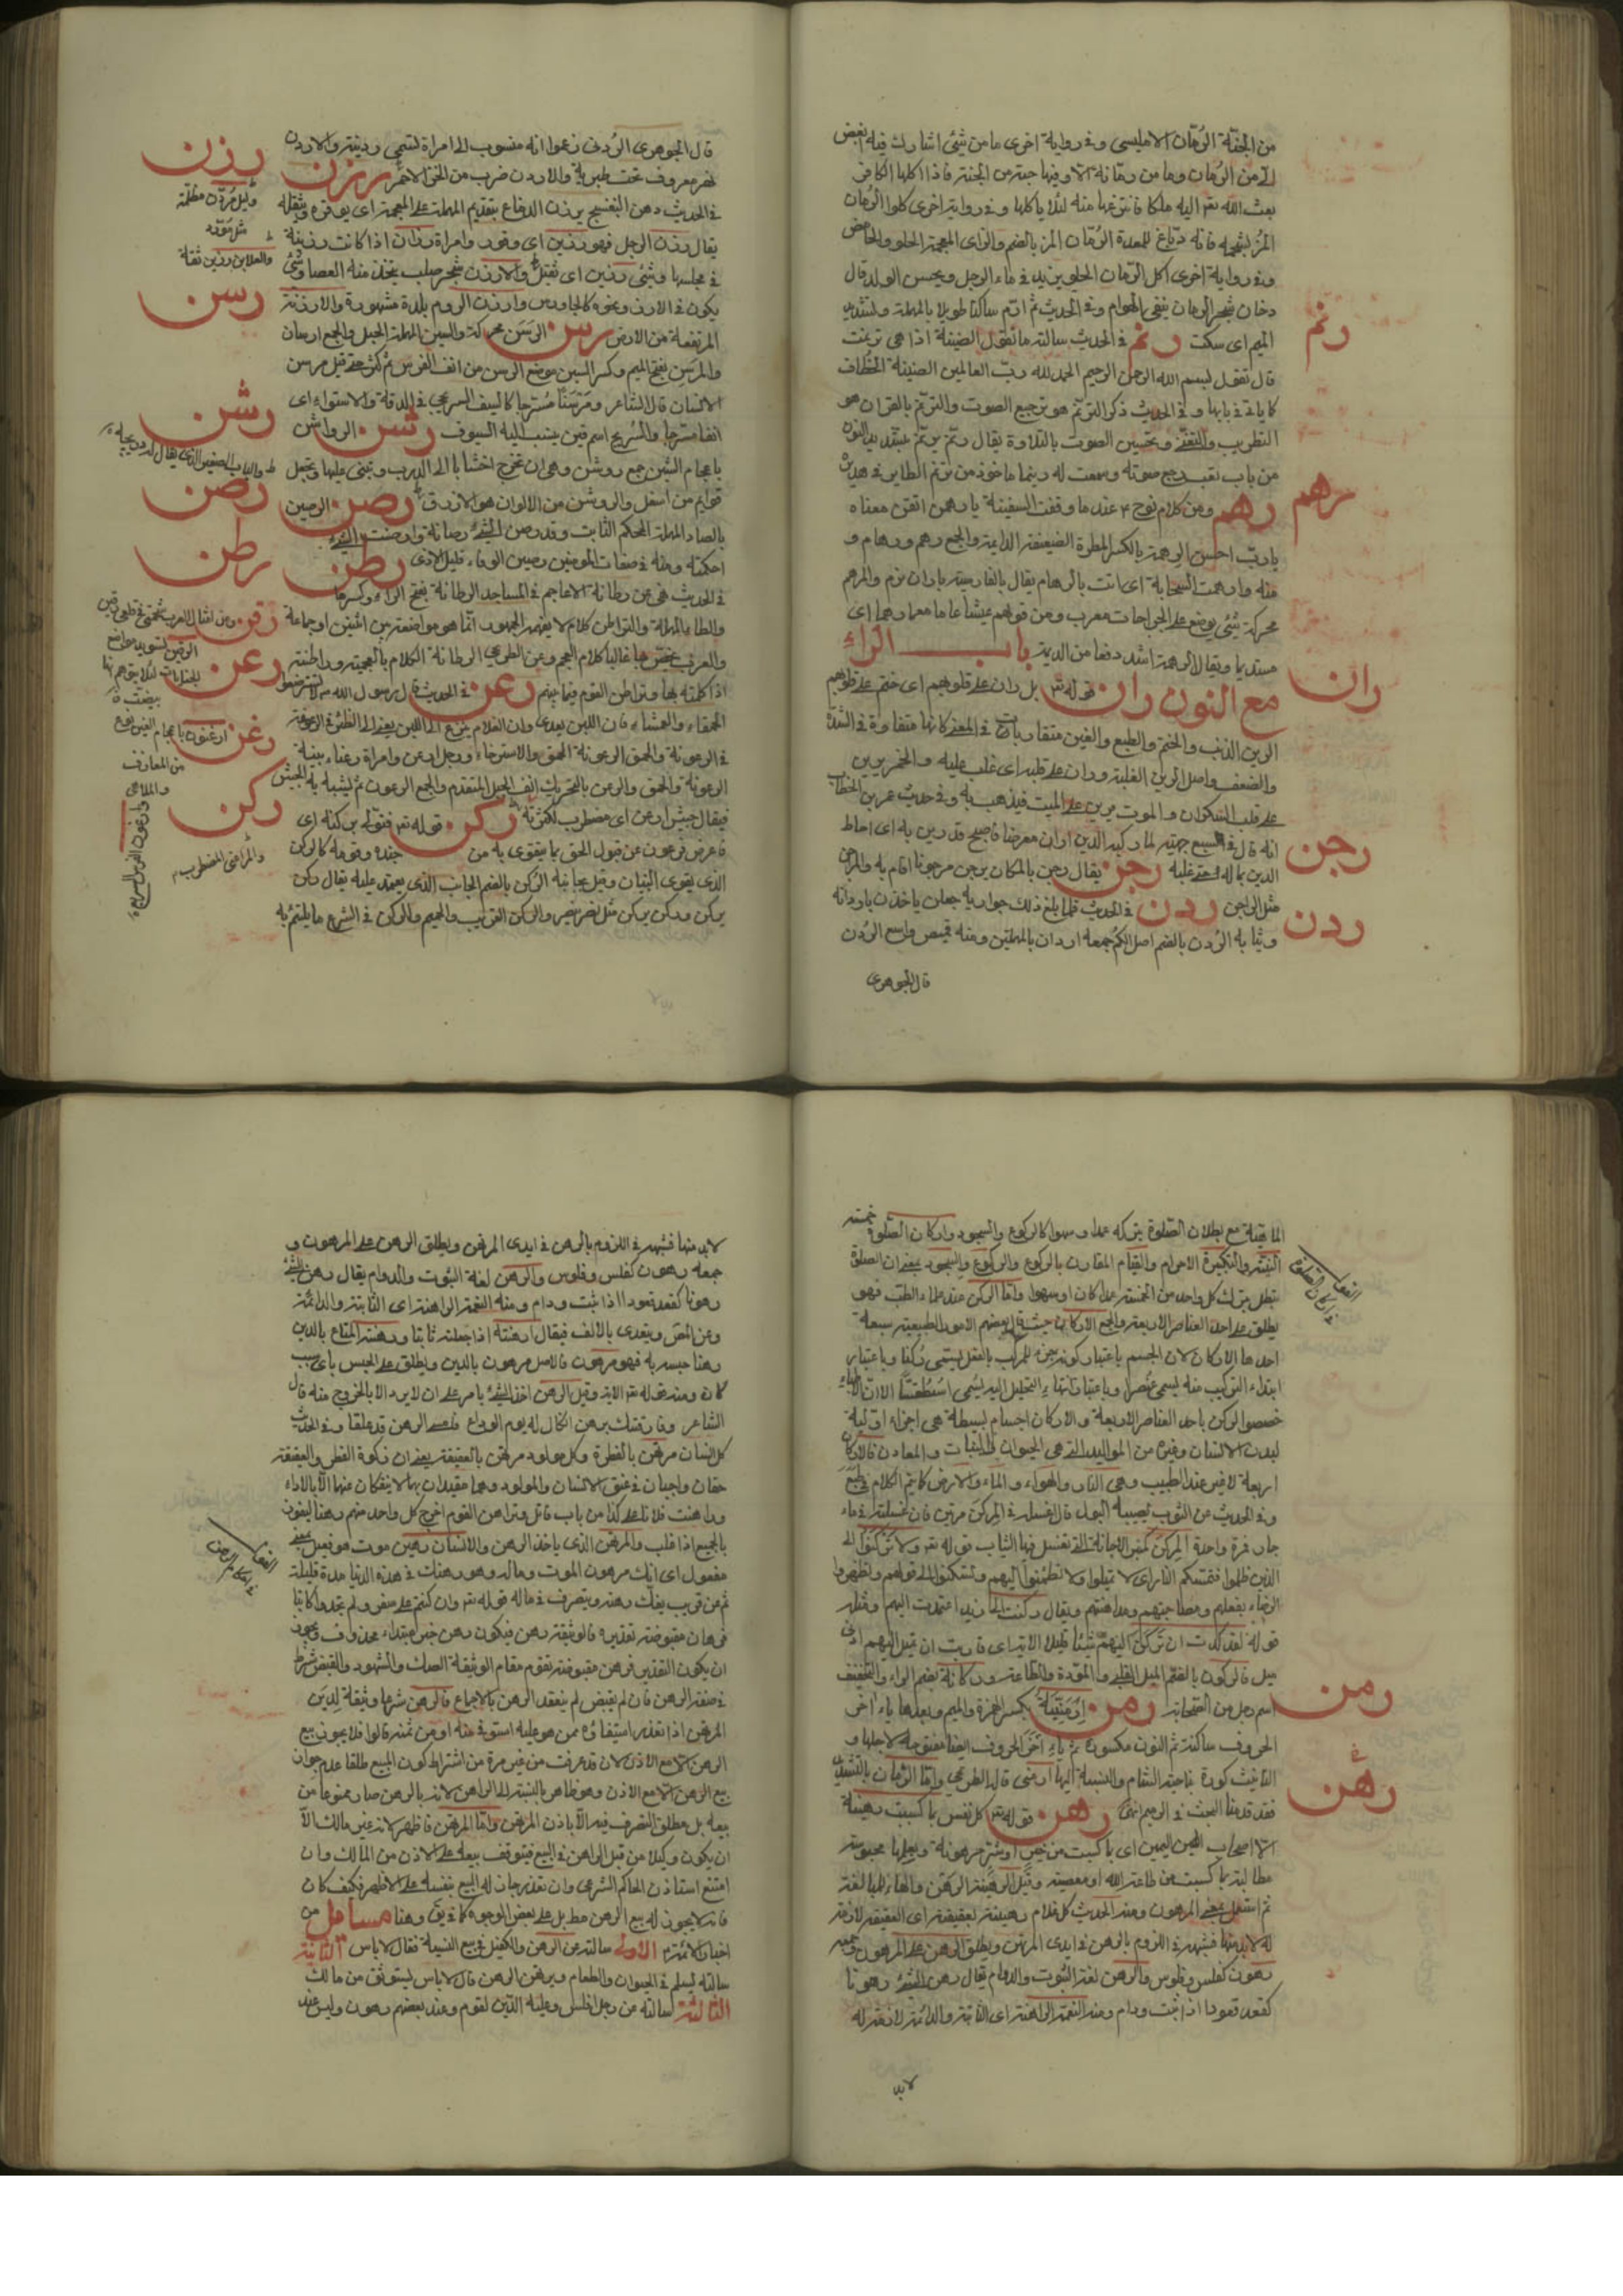 من الجنة الرمان الامليسى وفى رواية اخرى ما من شئ اشارك فيه ابغض
الىّ من الرمان وما من رمانة الا وفيها حبة من الجنة فاذا اكلها الكافر
بعث الله تعه اليه ملكا فانتزعها منه لئلا ياكلها وفى رواية اخرى كلوا الرمان
المز بشحمه فانه دباغ للمعدة الرمان المز بالضم والزاى المعجمة الحلو والحامض
وفى رواية اخرى اكل الرمان الحلو يزيد فى ماء الرجل ويحسن الولد قال
دخان شجر الرمان ينفى الهوام وفى الحديث ثم ارم ساكتا طويلا بالمهملة وتشديد
الميم اى سكت رنم فى الحديث سالته ما تقول الضيفة اذا هى ترنمت
قال تقول بسم الله الرحمن الرحيم الحمد لله رب العالمين
كما ياتى فى بابها وفى الحديث ذكر الترنم هو ترجيع الصوت والترنم بالقران هو
التطريب والتغنى وتحسين الصوت بالتلاوة يقال رنم يرنم
من باب تعب رجع صوته وسمعت له رنيما ماخوذ من ترنم الطاير فى هديره
رهم ومن كلام نوح ع عند ما وقفت السفينة يا رهمن اتقن معناه
يا رب احسن الرهمة بالكسر المطرة الضعيفة الدايمة والجمع رهم ورهام و
منه وارهمت السحابة اى اتت بالرهام يقال بالفارسية باران نرم والمرهم
شئ يوضع على الجراحات معرب
ويقال الرهمة اشد دفعا من الديمة باب الراء
مع النون ران قوله تعه بل ران على قلوبهم اى ختم على قلوبهم
الرين الذنب والختم والطبع والغين متقاربات فى المعنى كانها متفاوتة فى الشدة
والضعف واصل الرين الغلبة وران على قلبه اى غلب عليه والخمر يرين
على قلب السكران والموت يرين على الميت فيذهب به وفى حديث عمر بن الخطاب
انه قال فى اسيفع جهينة لما ركبه الدين ادان معرضا فاصبح قد رين به اى احاط
الدين بماله حتى غلبه رجن يقال رجن بالمكان يرجن رجونا اقام به والراجن
مثل الداجن ردن فى الحديث فلما بلغ ذلك جواريه جعلن ياخذن باردانه
وثيابه الردن بالضم اصل الكم جمعه اردان بالمهملتين ومنه قميص واسع الردن
قال الجوهرى
رنم
رهم
ران
رجن
ردن
قال الجوهرى الردنى زعموا انه منسوب الى امراة تسمى ردينة والاردن
نهر معروف تحت طبرية والاردن ضرب من الخز الاحمر رزن
فى الحديث دهن البنفسج يرزن الدماغ بتقديم المهملة على المعجمة اى يوقره ويثقله
يقال رزن الرجل فهو رزين اى وقور وامراة رزان اذا كانت رزينة
فى مجلسها وشئ رزين اى ثقيل والارزن شجر صلب يتخذ منه العصا وشئ
يكون فى الارز ونحوه كالجاورس وارزن الروم بلدة مشهورة والارزنة
المرتفعة من الارض رسن الرسن محركة والسين المهملة الحبل والجمع ارسان
والمرسن بفتح الميم وكسر السين موضع الرسن من انف الفرس ثم كثر حتى قيل مرسن
الانسان قال الشاعر ومرسنا مسرجا كالسيف السريجى فى الدقة والاستواء اى
انفا مسرجا والسريج اسم قين ينسب اليه السيوف رشن الرواشن
باعجام الشين جمع روشن وهى ان تخرج اخشابا الى الدرب وتبنى عليها وتجعل
قوايم من اسفل والروشن من الالوان هو الازرق رصن الرصين
بالصاد المهملة المحكم الثابت وقد رصن الشئ رصانة وارصنت الشئ
احكمته ومنه فى صفات المومنين رصين الوفاء قليل الاذى رطن
فى الحديث نهى عن رطانة الاعاجم فى المساجد الرطانة بفتح الراء وكسرها
والطاء المهملة والتراطن كلام لا يفهمه الجمهور انما هو مواضعة من اثنين او جماعة
والعرب تخص بها غالبا كلام العجم وعن الطرعى الرطانة الكلام بالعجمية وراطنته
اذا كلمته بها وتراطن القوم فيما بينهم رعن فى الحديث قال رسول الله ص لا تسترضعوا
الحمقاء والعمشاء فان اللبن يعدى وان الغلام ينزع الى اللبن يعنى الى الظئر فى الرعونة
فى الرعونة والحمق الرعونة الحمق والاسترخاء ورجل ارعن وامراة رعناء بينة
الرعونة والحمق والرعن بالتحريك انف الجبل المتقدم والجمع الرعون ثم يشبه به الجيش
فيقال جيش ارعن اى مضطرب لكثرته ركن قوله تعه فتولى بركنه اى
فاعرض فرعون عن قبول الحق بما يتقوى به من جنده وقومه كالركن
الذى يقوى البنيان وقيل بجانبه الركن بالضم الجانب الذى يعتمد عليه يقال ركن
يركن وركن يركن مثل نصر ينصر والركن القريب والحميم والركن فى الشرع ما يلتئم به
رزن
وليل مردن مظلم
رسن
والعلا بن رزين ثقة
رشن
رصن
رطن
رقن
رعن
رغن
من المعازف
والملاهى
ركن
الماهية مع بطلان الصلوة بتركه عمدا وسهوا كالركوع والسجود واركان الصلوة خمسة
النية والتكبيرة الاحرام والقيام المقارن بالركوع والركوع والسجود بمعنى ان الصلوة
تبطل بترك كل واحد من الخمسة عمدا كان او سهوا واما الركن عند علماء الطب فهو
يطلق على احد العناصر الاربعة والجمع الاركان حيث قال بعضهم الامور الطبيعية سبعة
احدها الاركان لان الجسم باعتبار كونه جزء للمركب بالفعل يسمى ركنا وباعتبار
ابتداء التركيب منه يسمى عنصرا وباعتبار انتهاء التحليل اليه يسمى اسطقسا الا ان الاطباء
خصصوا الركن باحد العناصر الاربعة والاركان اجسام بسيطة هى اجزاء اولية
لبدن الانسان وغيره من المواليد التى هى الحيوان والنبات والمعادن فالاركان
اربعة لا غير عند الطبيب وهى النار والهواء والماء والارض كما يتم الكلام فى طبع
وفى الحديث عن الثوب يصيبه البول قال اغسله فى المركن مرتين فان غسلته فى ماء
جار فمرة واحدة المركن كمنبر الاجانة التى تغسل فيها الثياب قوله تعه ولا تركنوا الى
الذين ظلموا فتمسكم النار اى لا تميلوا ولا تطمئنوا اليهم وتسكنوا الى قولهم وتظهروا
الرضاء بفعلهم ومصاحبتهم ومداهنتهم ويقال ركنت الى زيد اعتمدت اليه ومثله
قوله لقد كدت ان تركن اليهم شيئا قليلا الاية اى قاربت ان تميل اليهم ادنى
ميل فالركون بالضم الميل القلبى والمودة والطاعة وركانة بضم الراء والتخفيف
اسم رجل من الصحابة رمن ارمنيّة بكسر الهمزة والميم وبعدها ياء اخر
الحروف ساكنة ثم النون مكسورة ثم ياء اخر الحروف ايضا مفتوحة لاجلها و
التانيث كورة بناحية الشام والنسبة اليها ارمنى قال الطرعى واما الرمان بالتشديد
فقد قدمنا البحث فى الرميم انفا رهن قوله تعه كل نفس بما كسبت رهينة
الا اصحاب اليمين اى بما كسبت من خير او شر مرهونة وبعملها محبوسة
مطالبة بما كسبت من طاعة الله او معصيته وقيل الرهينة الرهن والهاء للمبالغة
ثم استعمل بمعنى المرهون ومنه الحديث كل غلام رهينة بعقيقته اى العقيقة لازمة
له لا بد منها فشبهه فى اللزوم بالرهن فى ايدى المرتهن ويطلق الرهن على المرهون وجمعه
رهون كفلس وفلوس والرهن لغة الثبوت والدوام يقال رهن الشئ رهونا
كقعد قعودا اذا ثبت ودام ومنه النعمة الراهنة اى الثابتة والدائمة
لابد
رمن
رهن
لابد منها فشبهه فى اللزوم بالرهن فى ايدى المرتهن ويطلق الرهن على المرهون و
جمعه رهون كفلس وفلوس والرهن لغة الثبوت والدوام يقال رهن الشئ
رهونا كقعد قعودا اذا ثبت ودام ومنه النعمة الراهنة اى الثابتة والدائمة
ويتعدى بالالف فيقال ارهنته اذا جعلته ثابتا ورهنته المتاع بالدين
رهنا حبسه به فهو مرهون فالاصل مرهون بالدين ويطلق على الحبس باى سبب
كان ومنه قوله تعه الاية وقيل الرهن اخذ الشئ بامر على ان لا يرد الا بالخروج منه قال
الشاعر وفارقتك برهن لا فكاك له يوم الوداع فامسى الرهن قد غلقا وفى الحديث
كل انسان مرتهن بالفطرة وكل مولود مرتهن بالعقيقة يعنى ان زكوة الفطر والعقيقة
حقان واجبان فى عنق الانسان والمولود وهما مقيدان بهما لا ينفكان عنها الا بالاداء
وراهنت فلانا على كذا من باب قاتل وتراهن القوم اخرج كل واحد منهم رهنا ليفوز
بالجميع اذا غلب والمرتهن الذى ياخذ الرهن والانسان رهين موت هو فعيل بمعنى
مفعول اى انك مرهون الموت وماله وهو رهنك فى هذه الدنيا مدة قليلة
ثم عن قريب يفك رهنه ويتصرف فى ماله قوله تعه وان كنتم على سفر ولم تجدوا كاتبا
فرهان مقبوضة تقديره فالوثيقة رهن فيكون رهن خبر مبتداء محذوف ويجوز
ان يكون التقدير فرهن مقبوضة تقوم مقام الوثيقة الصك والشهود والقبض شرط
فى صحة الرهن فان لم يقبض لم ينعقد الرهن بالاجماع فالرهن شرعا وثيقة لدين
المرتهن اذا تعذر استيفاؤه ممن هو عليه استوفى منه او من ثمنه قالوا فلا يجوز بيع
الرهن الا مع الاذن لان قد عرفت من غير مرة من اشتراط كون المبيع طلقا عدم جواز
بيع الرهن الا مع الاذن وهو ظاهر بالنسبة الى الراهن لانه بالرهن صار ممنوعا من
بيعه بل مطلق التصرف فيه الا باذن المرتهن واما المرتهن فاظهر لانه غير مالك الا
ان يكون وكيلا من قبل الراهن فى البيع فيتوقف بيعه على الاذن من المالك وان
امتنع استاذن الحاكم الشرعى وان تعذر جاز له البيع بنفسه على الاظهر فكيف كان
فانه لا يجوز له بيع الرهن على بعض الوجوه وهنا مسائل من
اخبار الائمة الاولى سالته عن الرهن والكفيل فى بيع النسية فقال لا باس الثانية
سالته يسلم فى الحيوان والطعام ويرتهن الرهن قال لا باس يستوثق من مالك
الثالثة سالته عن رجل افلس وعليه الدين لقوم وعند بعضهم رهون وليس عند